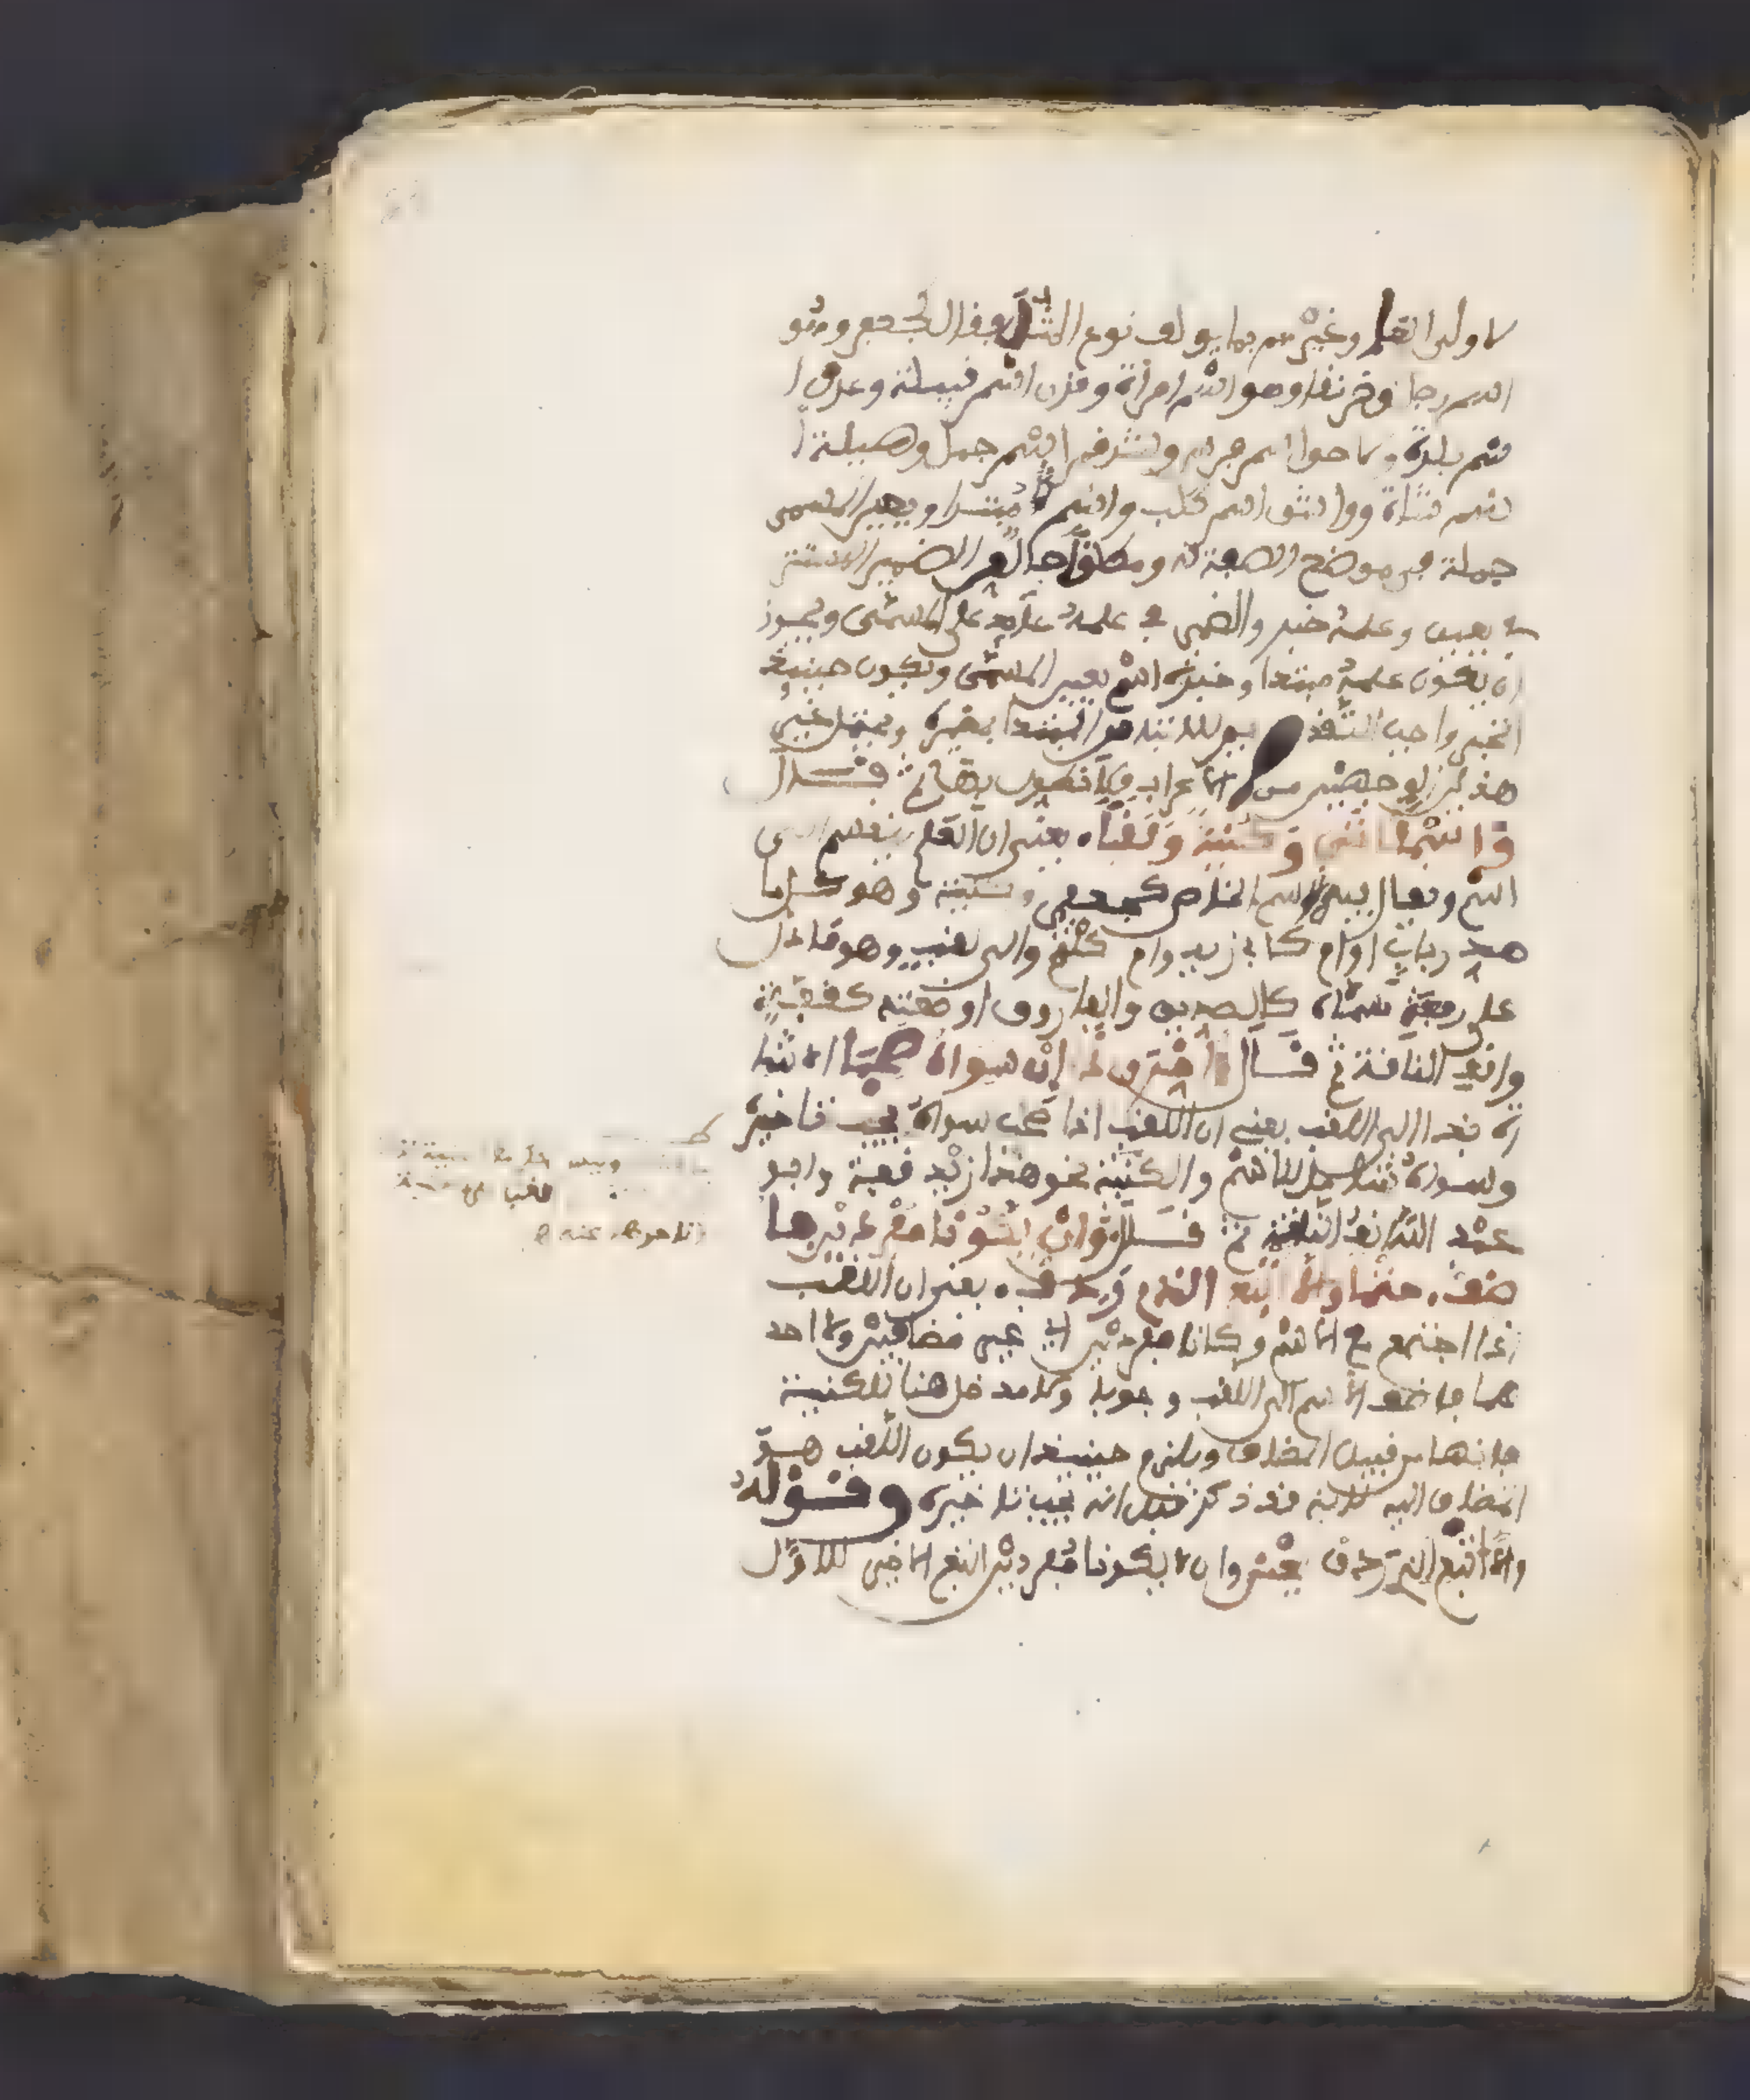 لاولى العلم وغيرهم مما يولف نوع المثل فقال كجعفر وهو
اسم رجل وخرنقا وهو اسم امراة وقرن اسم قبيلة وعدن ا
سم بلدة ولاحق اسم فرس وشذقم اسم جمل وهيلة ا
سم شاة وواشق اسم كلب واسم مبتدا ويعين المسمى
جملة في موضع الصفة له ومطلقا حال من الضمير المستتر
في يعين وعلمه خبر والضمير في علمه عائد على المسمى ويجوز
ان يكون علمه مبتدا وخبره اسم يعين المسمى ويكون حينئذ
الخبر واجب التقديم
هذين الوجهين من الاعراب ثم قال
واسما اتى وكنية ولقبا يعني ان العلم ينقسم الى
اسم ويقال فيه الاسم الخاص كجعفر وكنية وهو كل ما
صدر باب او ام كابي زيد وام كلثوم والى لقب وهو ما دل
على رفعة مسماه كالصديق والفاروق او ضعته كقفة
وانف الناقة ثم قال واخرن ذا ان سواه صحبا الاشا
رة بذا الى اللقب يعني ان اللقب اذا صحب سواه يجب تاخيره
وسواه شامل للاسم والكنية نحو هذا زيد قفة وابو
عبد الله انف الناقة ثم قال وان يكونا مفردين فا
ضف حتما والا اتبع الذي ردف يعني ان اللقب
اذا اجتمع مع الاسم وكانا مفردين اي غير مضافين ولا احد
هما فاضف الاسم الى اللقب وجوبا ولا مدخل هنا للكنية
فانها من قبيل المضاف ويلزم حينئذ ان يكون اللقب هو
المضاف اليه لانه قد ذكر قبل انه يجب تاخيره وقوله
والا اتبع الذي ردف يعني وان لا يكونا مفردين اتبع الاخير للاول